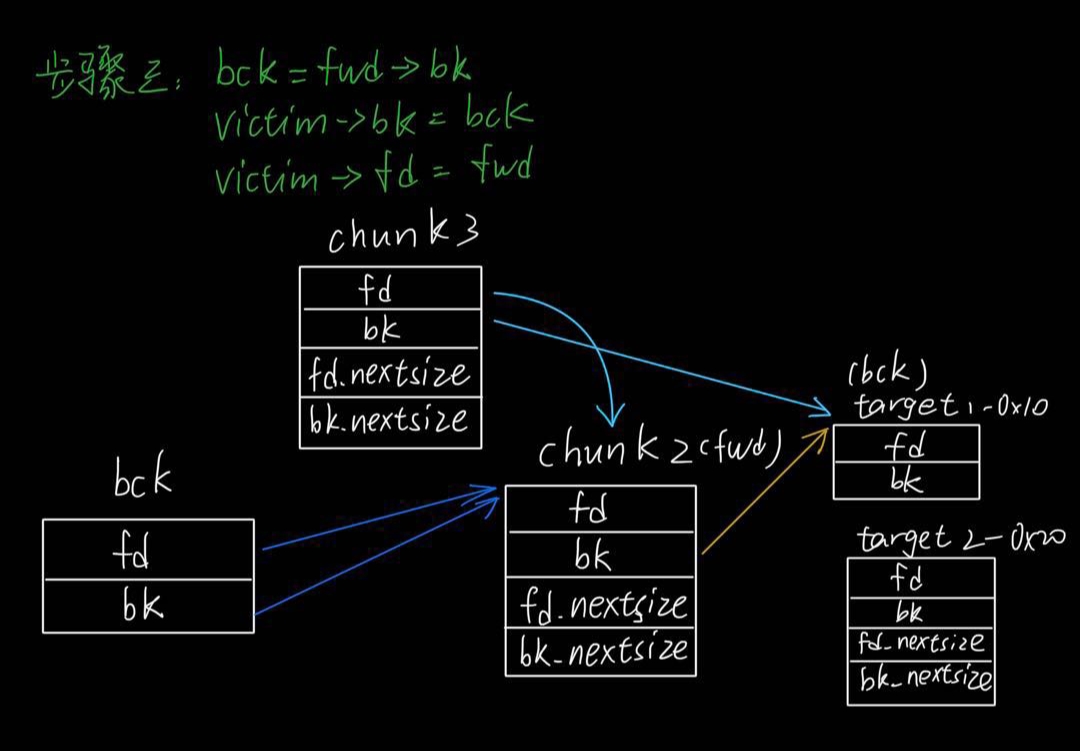 步骤三: bck = fwd->bk
victim->bk = bck
victim->fd = fwd
chunk 3
fd
bk
fd.nextsize
bk.nextsize
(bck)
target1-0x10
fd
bk
chunk2(fwd)
fd
bk
fd.nextsize
bk_nextsize
bck
fd
bk
target2-0x20
fd
bk
fd_nextsize
bk_nextsize